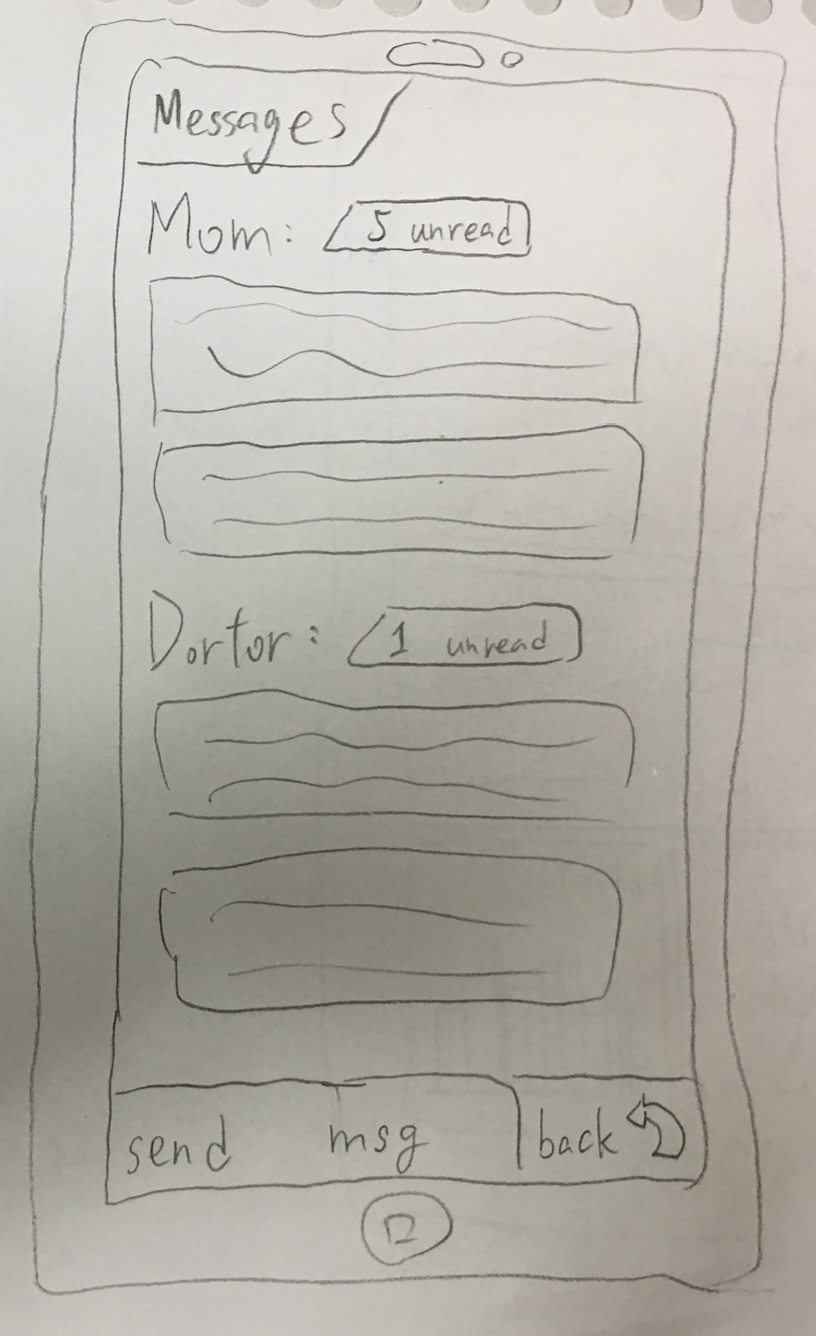 Messages
Mom: 5 unread
Dortor: 1 unread
send msg back